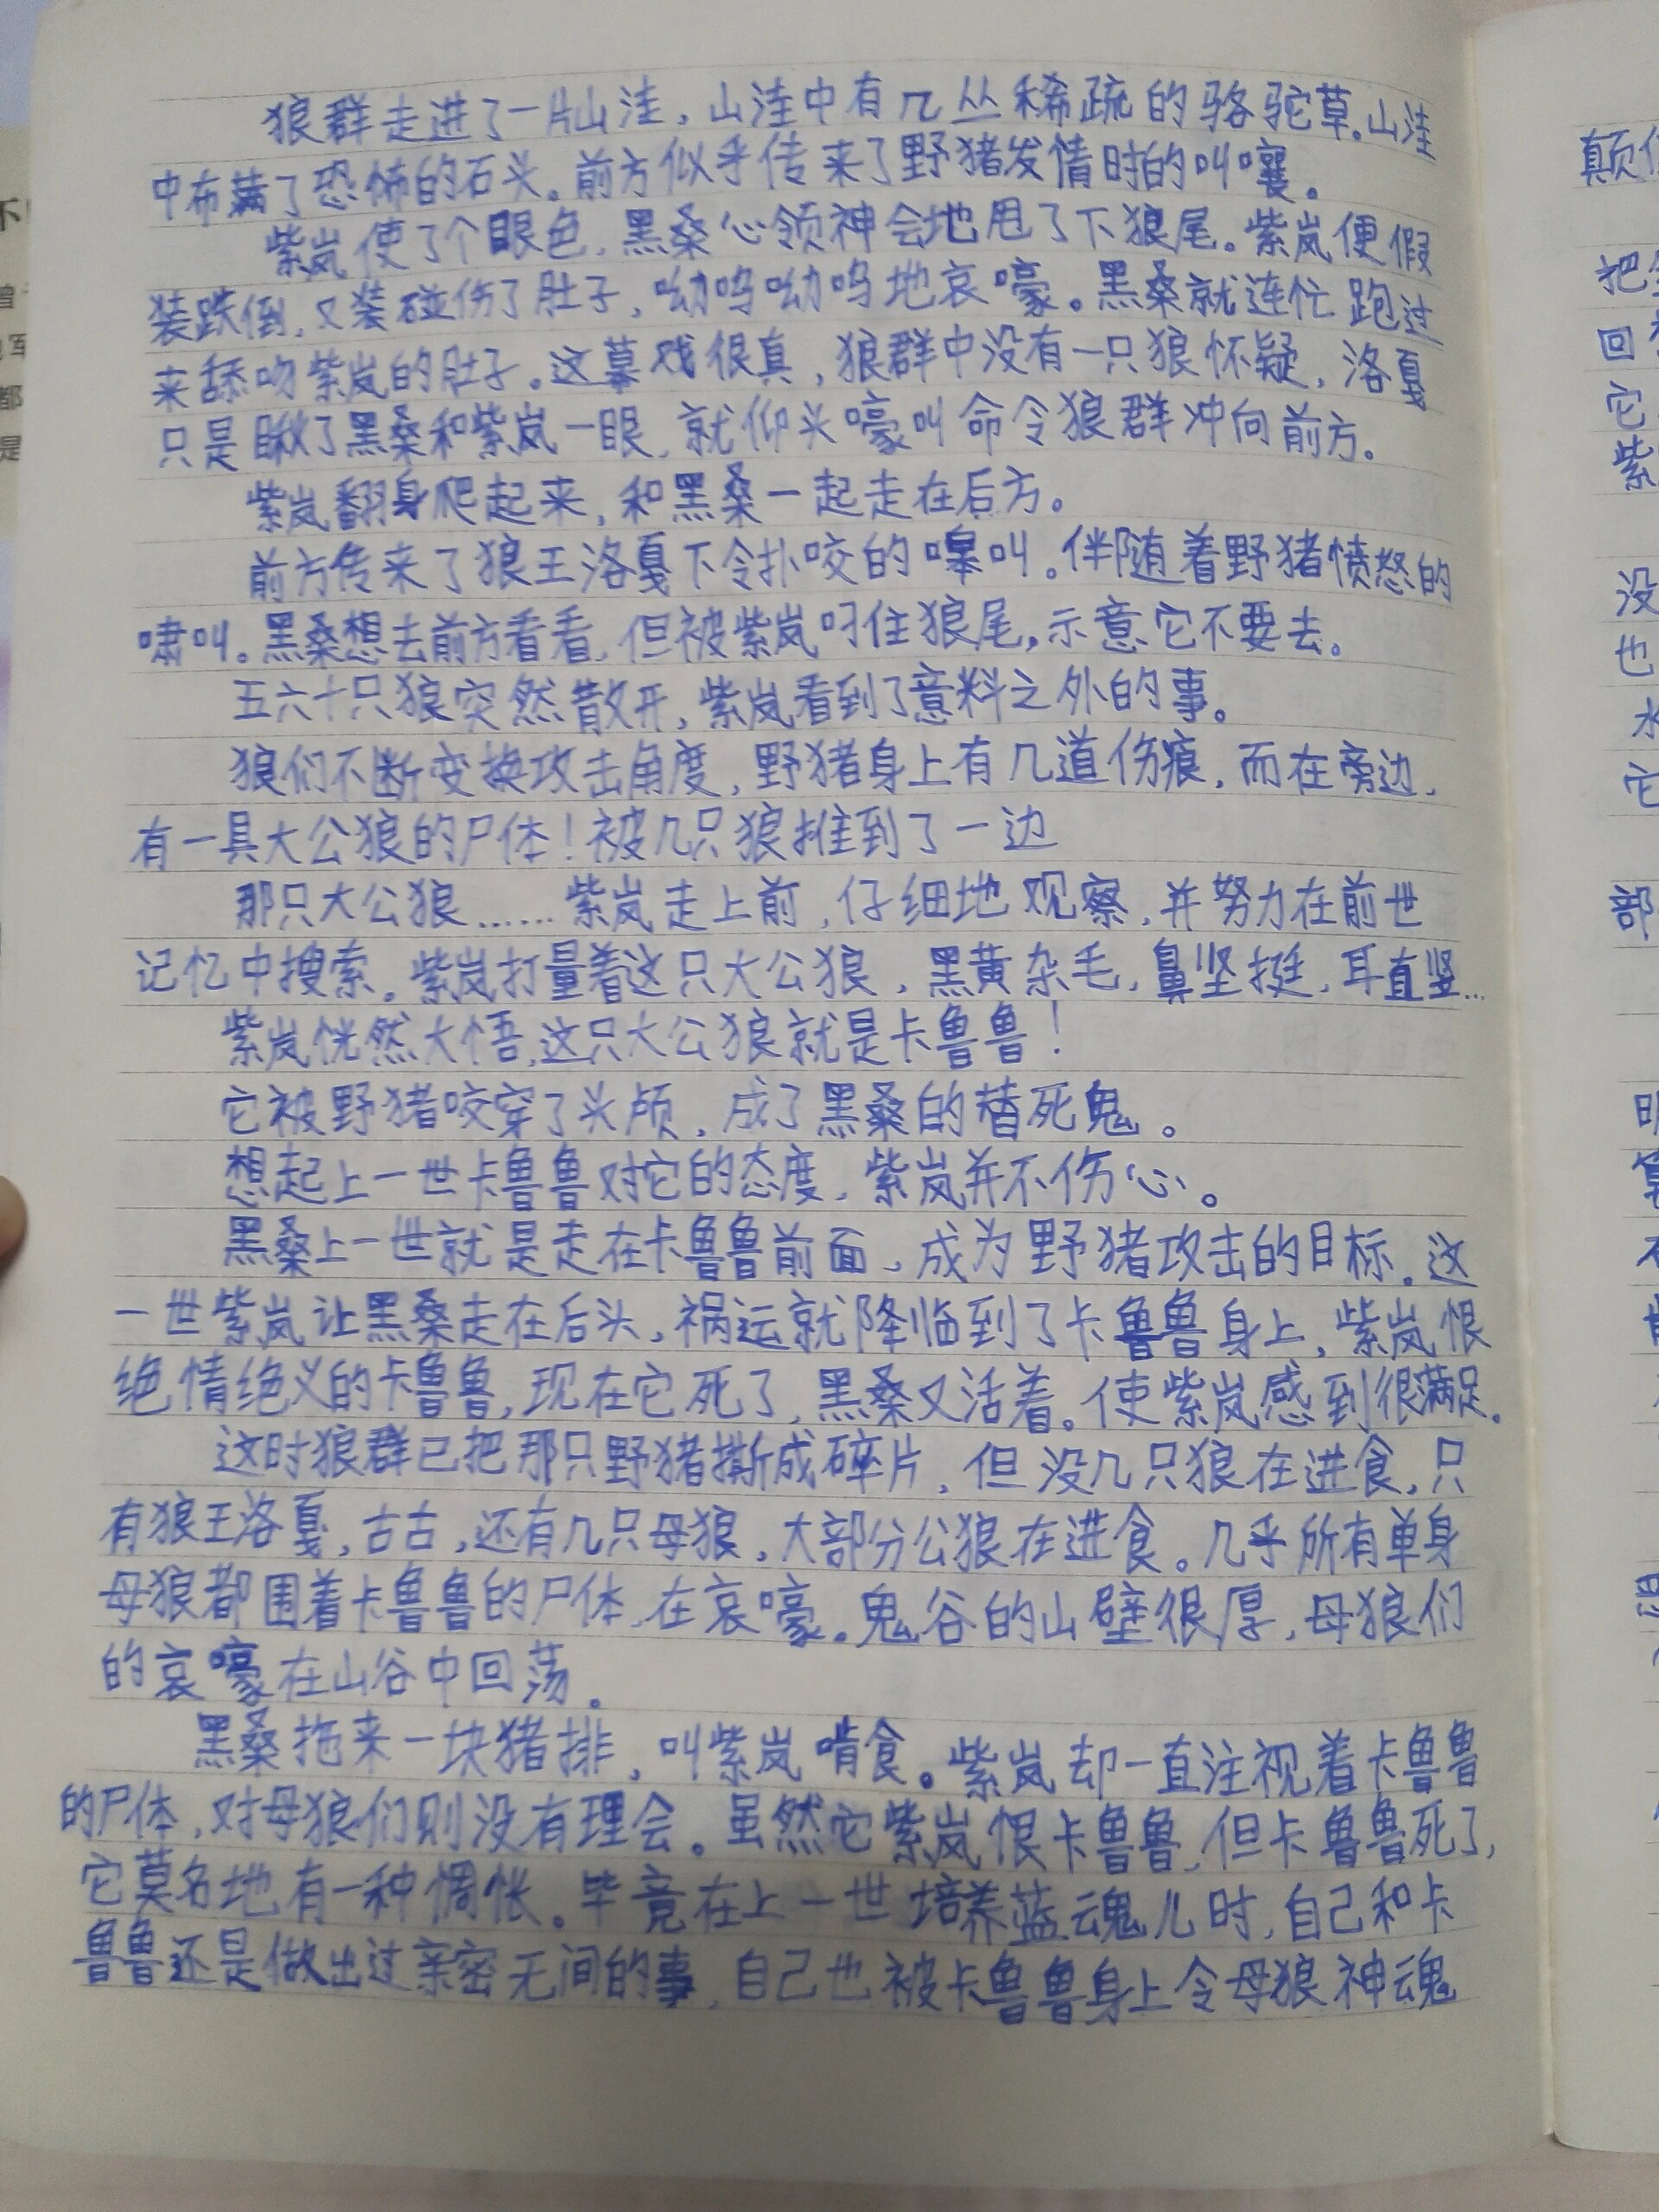 狼群走进了一片山洼，山洼中有几丛稀疏的骆驼草。山洼
中布满了恐怖的石头。前方似乎传来了野猪发情时的叫嚷。
紫岚使了个眼色，黑桑心领神会地甩了下狼尾。紫岚便假
装跌倒，又装碰伤了肚子，呦呜呦呜地哀嚎。黑桑就连忙跑过
来舔吻紫岚的肚子。这幕戏很真，狼群中没有一只狼怀疑，洛戛
只是瞅了黑桑和紫岚一眼，就仰头嚎叫命令狼群冲向前方。
紫岚翻身爬起来，和黑桑一起走在后方。
前方传来了狼王洛戛下令扑咬的嗥叫。伴随着野猪愤怒的
啸叫。黑桑想去前方看看，但被紫岚叼住狼尾，示意它不要去。
五六十只狼突然散开，紫岚看到了意料之外的事。
狼们不断变换攻击角度，野猪身上有几道伤痕，而在旁边，
有一具大公狼的尸体！被几只狼推到了一边
那只大公狼……紫岚走上前，仔细地观察，并努力在前世
记忆中搜索。紫岚打量着这只大公狼，黑黄杂毛，鼻坚挺，耳直竖…
紫岚恍然大悟，这只大公狼就是卡鲁鲁！
它被野猪咬穿了头颅，成了黑桑的替死鬼。
想起上一世卡鲁鲁对它的态度，紫岚并不伤心。
黑桑上一世就是走在卡鲁鲁前面，成为野猪攻击的目标。这
一世紫岚让黑桑走在后头，祸运就降临到了卡鲁鲁身上，紫岚恨
绝情绝义的卡鲁鲁，现在它死了，黑桑又活着。使紫岚感到很满足。
这时狼群已把那只野猪撕成碎片，但没几只狼在进食，只
有狼王洛戛，古古，还有几只母狼，大部分公狼在进食。几乎所有单身
母狼都围着卡鲁鲁的尸体，在哀嚎。鬼谷的山壁很厚，母狼们
的哀嚎在山谷中回荡。
黑桑拖来一块猪排，叫紫岚啃食。紫岚却一直注视着卡鲁鲁
的尸体，对母狼们则没有理会。虽然它紫岚恨卡鲁鲁，但卡鲁鲁死了，
它莫名地有一种惆怅。毕竟在上一世培养蓝魂儿时，自己和卡
鲁鲁还是做出过亲密无间的事，自己也被卡鲁鲁身上令母狼神魂
颠
把
回
它
紫
没
也
水
它
部